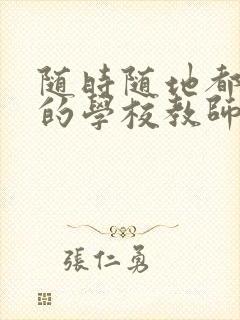 随時随地都
的學校教師
張仁勇